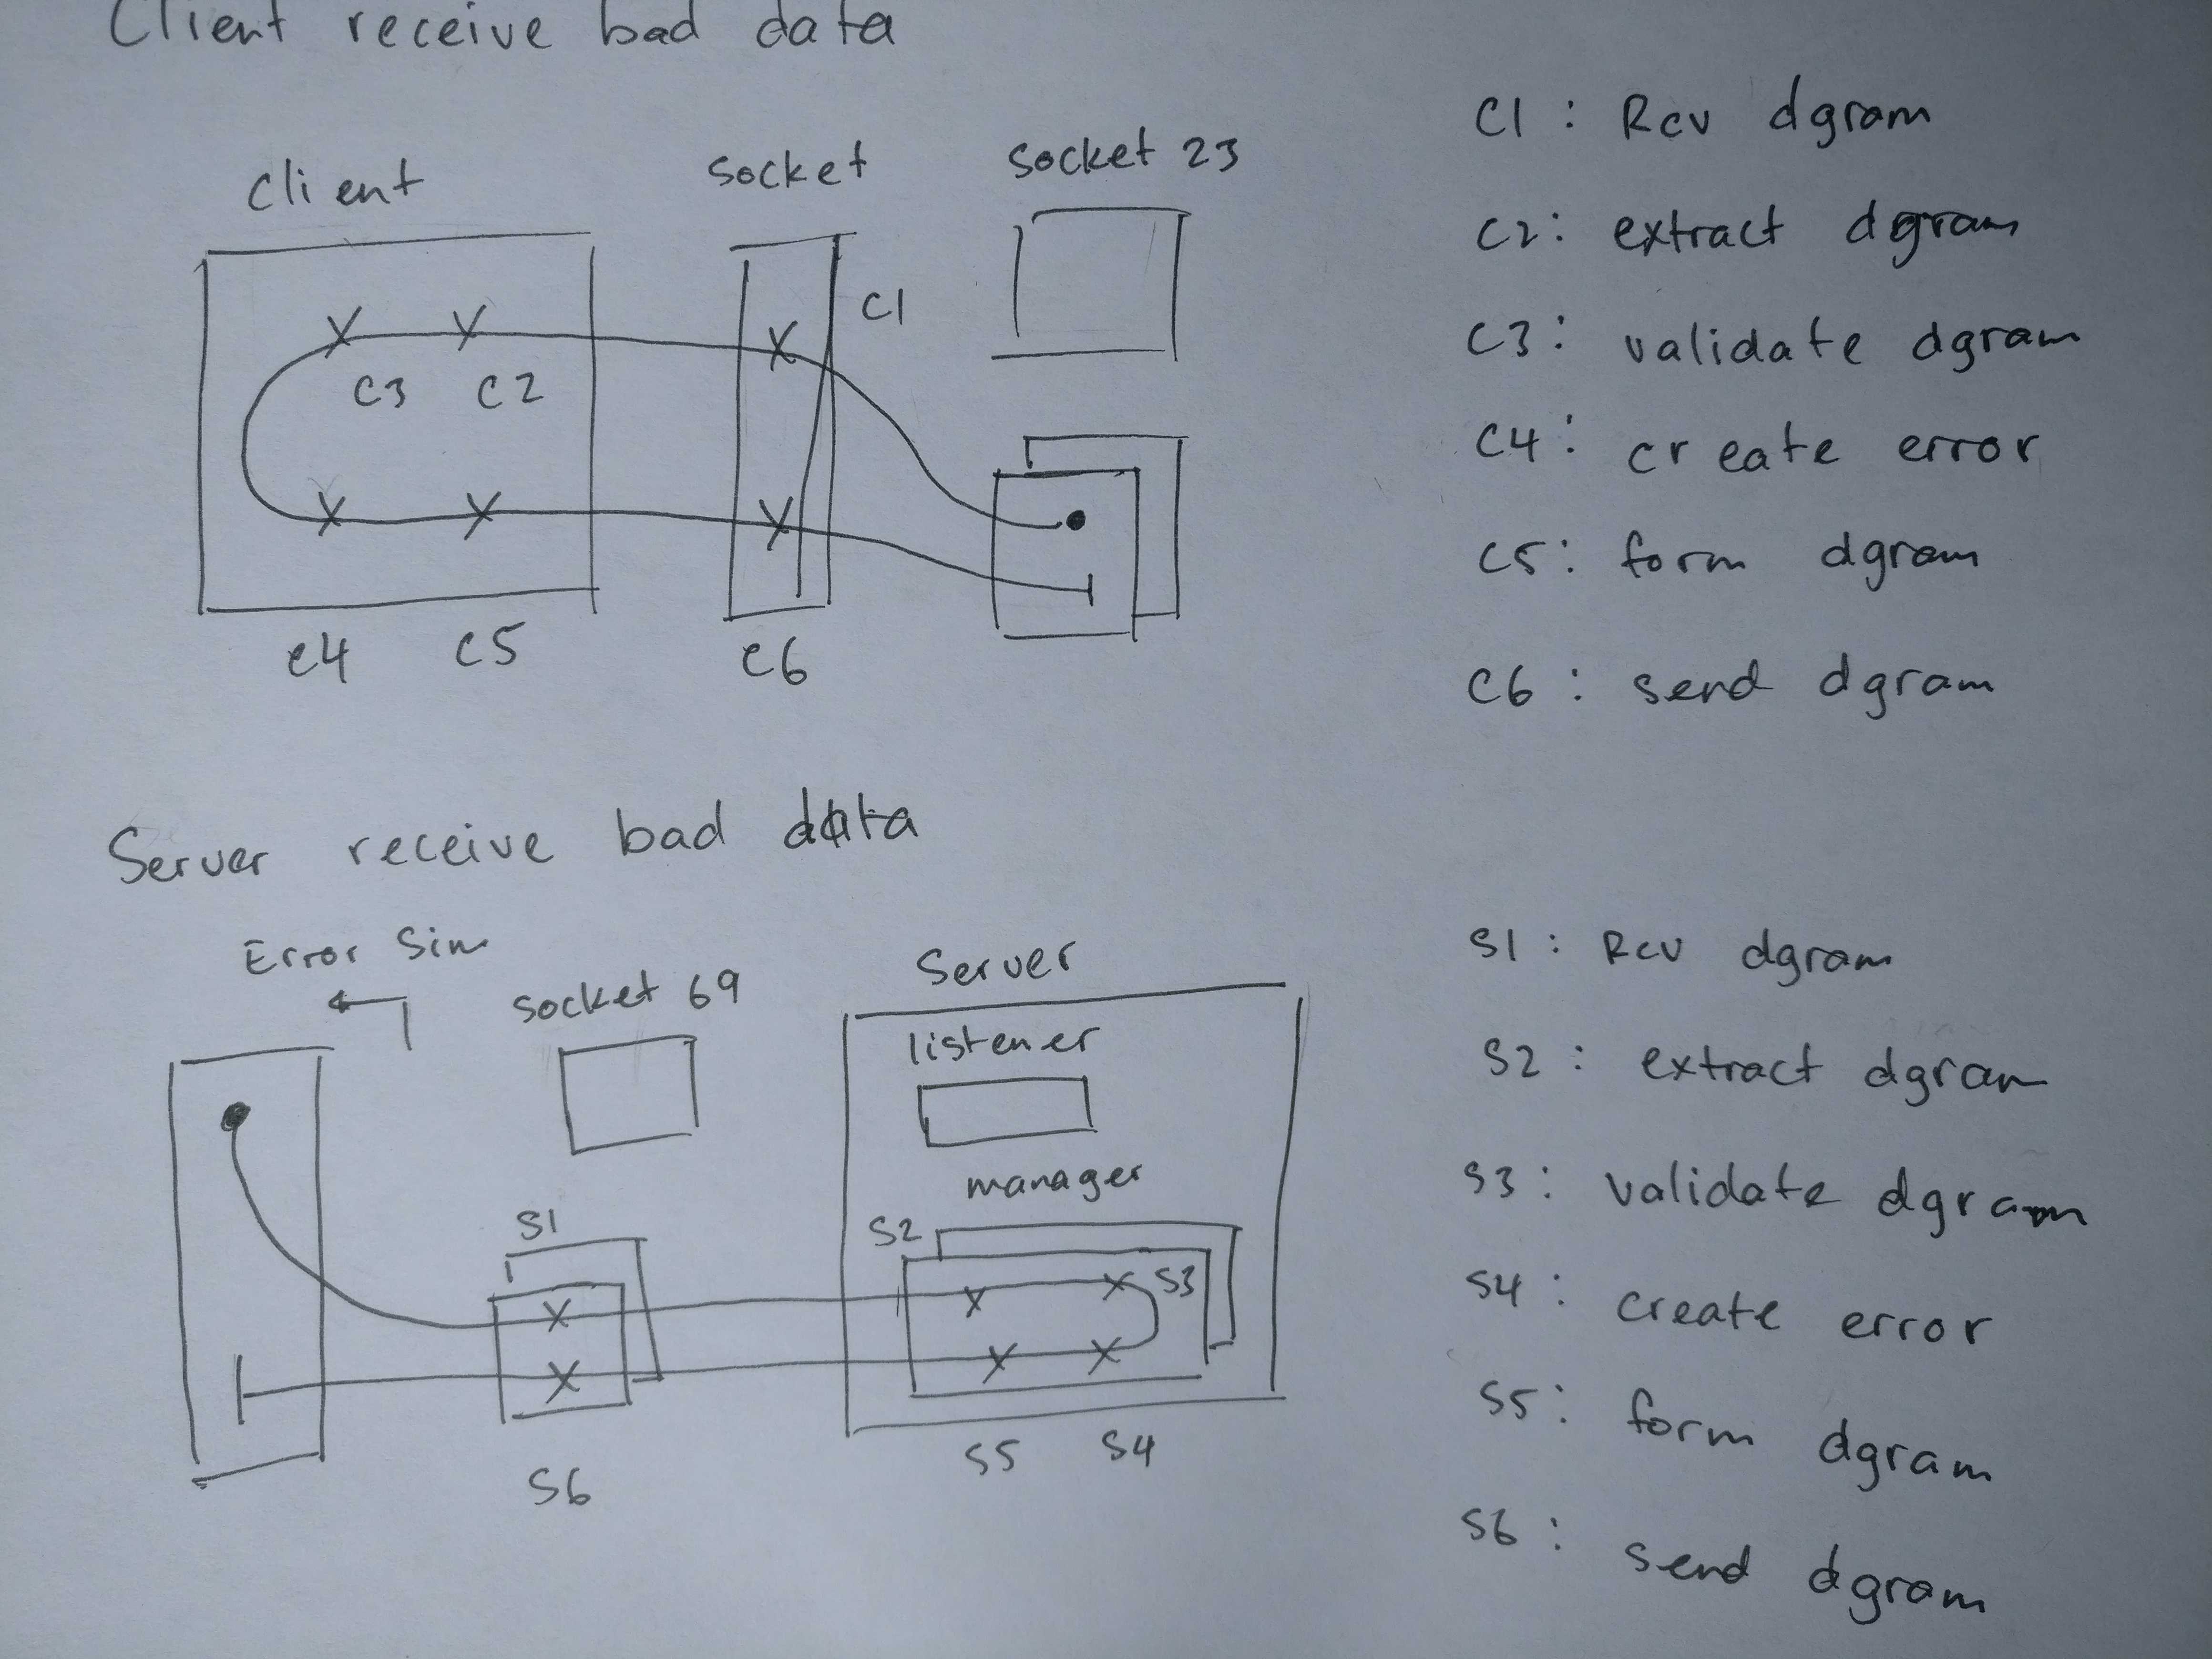 Client receive bad data
client
socket
socket 23
C1
C3 C2
C4 C5 C6
C1 : Rcv dgram
C2 : extract dgram
C3 : validate dgram
C4 : create error
C5 : form dgram
C6 : send dgram
Server receive bad data
Error Sim
socket 69
Server
listener
manager
S1
S2
S3
S5 S4
S6
S1 : Rcv dgram
S2 : extract dgram
S3 : validate dgram
S4 : create error
S5 : form dgram
S6 : send dgram